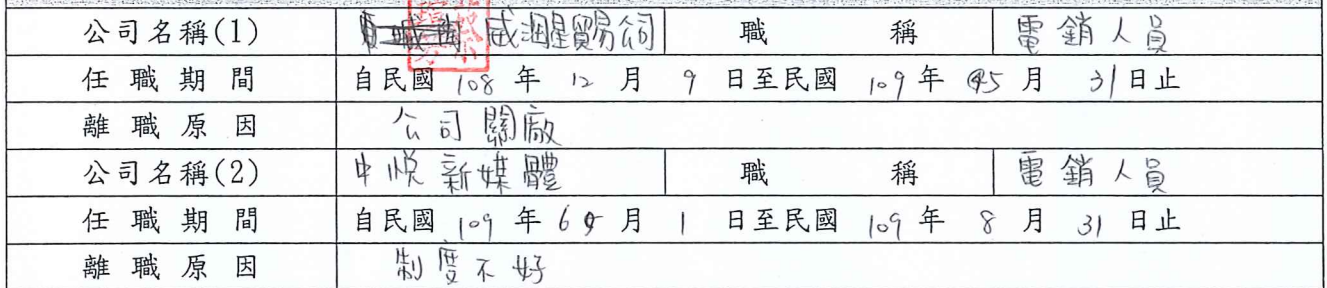 公司名稱(1) 威潤星貿易公司 職稱 電銷人員
任職期間 自民國 108 年 12 月 9 日至民國 109 年 5 月 31 日止
離職原因 公司關廠
公司名稱(2) 中悅新媒體 職稱 電銷人員
任職期間 自民國 109 年 6 月 1 日至民國 109 年 8 月 31 日止
離職原因 制度不好